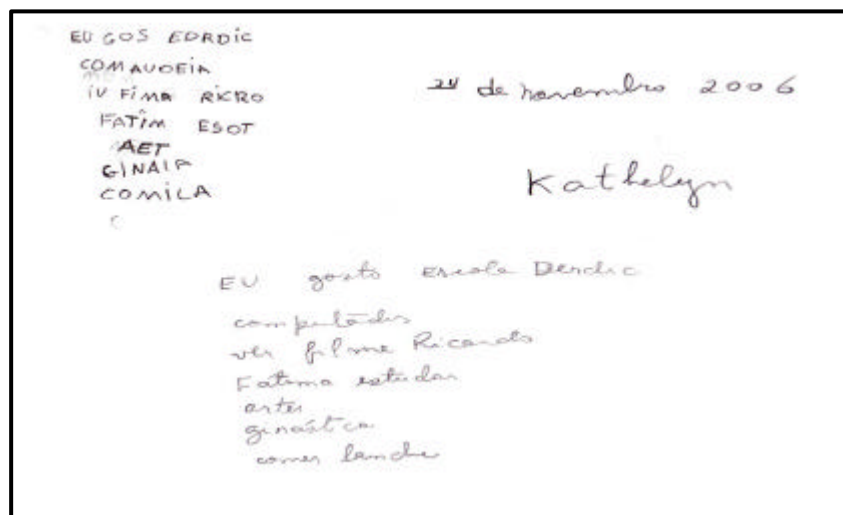 EU GOS EDRDIC
COMAUDEIA
iU FiMA RICRO
FATiM ESOT
AET
GINAIA
COMiLA
C
24 de novembro 2006
Kathelyn
EU gosto Escola Derdic
computador
ver filme Ricardo
Fatima estudar
artes
ginástica
comer lanche